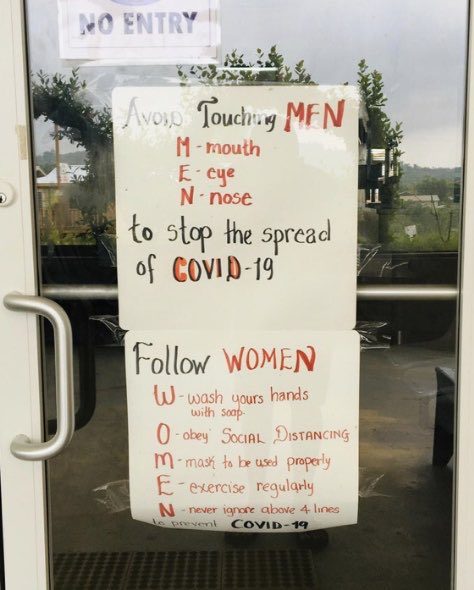 NO ENTRY
AVOID Touching MEN
M - mouth
E - eye
N - nose
to stop the spread
of COVID-19
Follow WOMEN
W - wash yours hands
with soap
O - obey SOCIAL DISTANCING
M - mask to be used properly
E - exercise regularly
N - never ignore above 4 lines
to prevent COVID-19